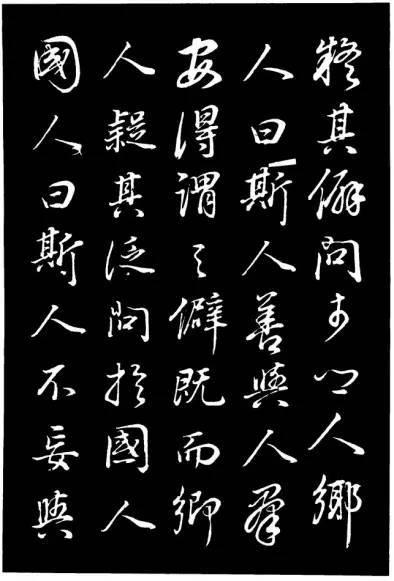 疑其僻問於鄉人鄉
人曰斯人善與人羣
安得謂之僻既而鄉
人疑其泛問於國人
國人曰斯人不妄與